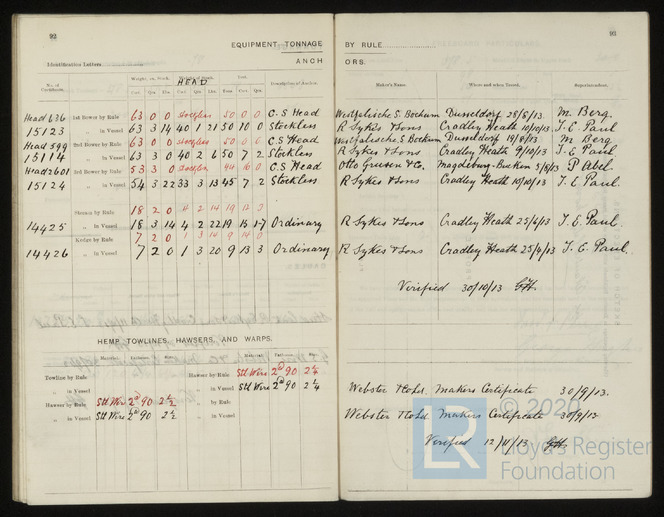 92
EQUIPMENT TONNAGE
Identification Letters
ANCH
No. of Certificate.
Weight, ex. Stock.
HEAD
Test.
Description of Anchor.
Cwt. Qrs. Lbs. Cwt. Qrs. Lbs. Tons. Cwt. Qrs.
Head 636 1st Bower by Rule 63 0 0 stockless 50 0 0 C.S Head
15123 „ in Vessel 63 3 14 40 1 21 50 10 0 Stockless
Head 599 2nd Bower by Rule 63 0 0 stockless 50 0 0 C.S Head
15114 „ in Vessel 63 3 0 40 2 6 50 7 2 Stockless
Head 2601 3rd Bower by Rule 53 3 0 stockless 44 10 0 C.S Head
15124 „ in Vessel 54 3 22 33 3 13 45 7 2 Stockless
Stream by Rule 18 2 0 4 2 14 19 12 2
14425 „ in Vessel 18 3 14 4 2 22 19 15 1-7 Ordinary
Kedge by Rule 7 2 0 1 3 14 9 14 0
14426 „ in Vessel 7 2 0 1 3 20 9 13 3 Ordinary
HEMP TOWLINES, HAWSERS, AND WARPS.
Material. Fathoms. Material. Fathoms.
Towline by Rule Hawser by Rule Stl Wire 2@90 2¼
„ in Vessel „ in Vessel Stl Wire 2@90 2¼
Hawser by Rule Stl Wire 2@90 2½ „ by Rule
„ in Vessel Stl Wire 2@90 2½ „ in Vessel
93
BY RULE
ORS.
Maker's Name. Where and when Tested. Superintendent.
Westfalische S. Bochum Dusseldorf 28/8/13 M. Berg.
R Sykes & Sons Cradley Heath 10/10/13 T. E Paul
Westfalische S. Bochum Dusseldorf 19/8/13 M. Berg
R Sykes & Sons Cradley Heath 9/10/13 T. E Paul
Otto Gruson & Co. Magdeburg-Buckau 5/8/13 P Abel
R Sykes & Sons Cradley Heath 10/10/13 T. E Paul.
R Sykes & Sons Cradley Heath 25/4/13 T. E Paul.
R Sykes & Sons Cradley Heath 25/4/13 T. E Paul.
Verified 30/10/13
Webster & Co Ld. Makers Certificate 30/9/13.
Webster & Co Ld Makers Certificate 30/9/13
Verified 12/11/13
© 2020
LR
Lloyd's Register
Foundation